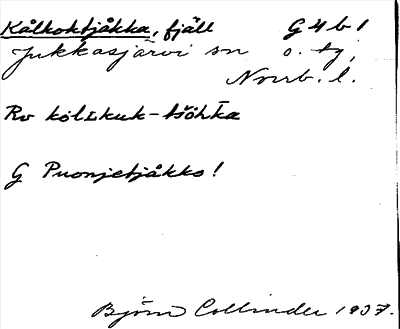 Kålkoktjåkka, fjäll G 4 b 1
Jukkasjärvi sn o. tg,
Norrb. l.
Rv kolʟkuk-tšŏhk̄a
G Puonjetjåkko!
Björn Collinder 1937.